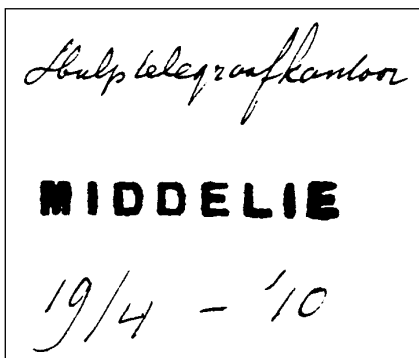 Hulptelegraafkantoor
MIDDELIE
19/4 - '10